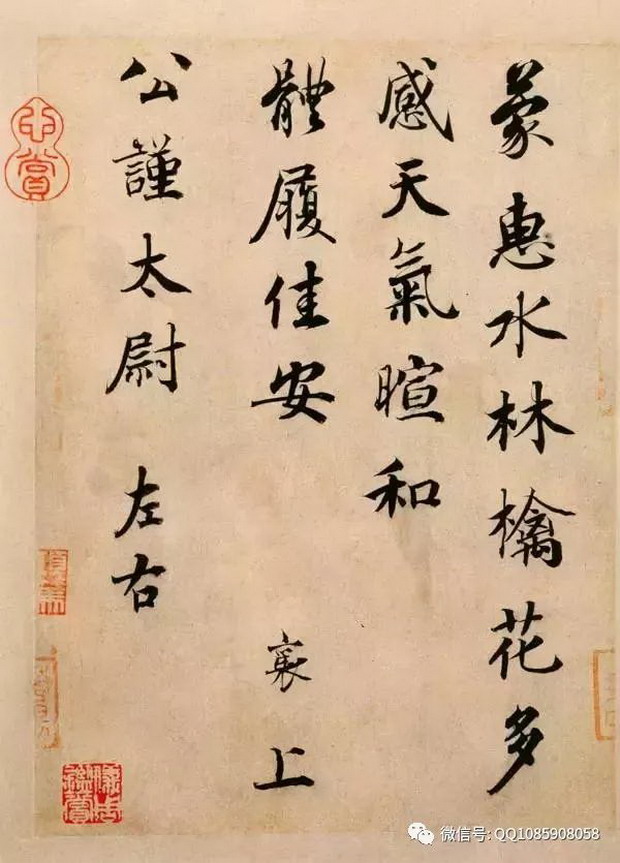 蒙惠水林檎花多
感天氣暄和
體履佳安 襄上
公謹太尉 左右
微信号: QQ1085908058